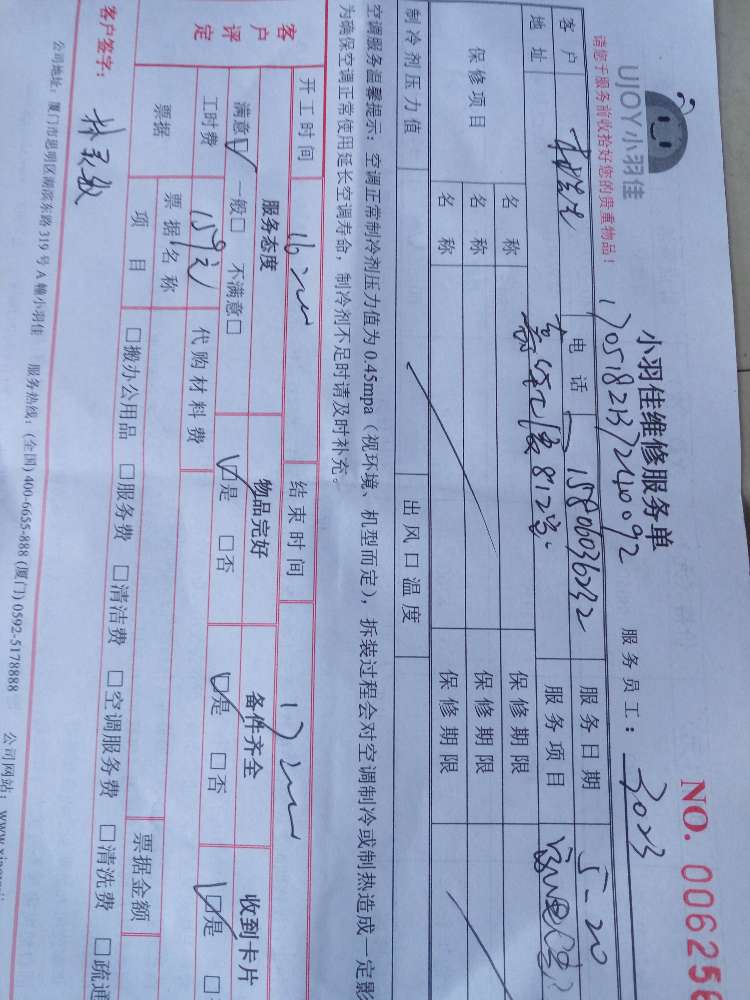 UJOY小羽佳
请您于服务前收拾好您的贵重物品！
小羽佳维修服务单
NO. 006256
服务员工：3023
客户 电话 15806036232 服务日期 5-20
地址 服务项目
保修项目 名称 保修期限
名称 保修期限
名称 保修期限
制冷剂压力值 出风口温度
空调服务温馨提示：空调正常制冷剂压力值为 0.45mpa（视环境、机型而定），拆装过程会对空调制冷或制热造成一定影
为确保空调正常使用延长空调寿命，制冷剂不足时请及时补充。
开工时间 结束时间
客户评定 服务态度 物品完好 备件齐全 收到卡片
满意□ 一般□ 不满意□ □是 □否 □是 □否 □是 □
工时费 159元 代购材料费
票据 票据名称 票据金额
项目 □搬办公用品 □服务费 □清洁费 □空调服务费 □清洗费 □疏通
客户签字：
公司地址：厦门市思明区湖滨东路 319 号 A 幢小羽佳 服务热线：(全国) 400-6655-888 (厦门) 0592-5178888 公司网站：